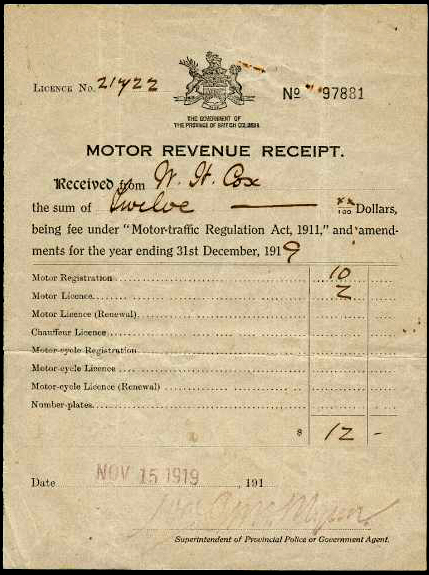 LICENCE No. 21422
No 97881
THE GOVERNMENT OF
THE PROVINCE OF BRITISH COLUMBIA
MOTOR REVENUE RECEIPT.
Received from W. H. Cox
the sum of twelve xx/100 Dollars,
being fee under "Motor-traffic Regulation Act, 1911," and amend-
ments for the year ending 31st December, 1919
Motor Registration 10
Motor Licence 2
Motor Licence (Renewal)
Chauffeur Licence
Motor-cycle Registration
Motor-cycle Licence
Motor-cycle Licence (Renewal)
Number-plates
$ 12 -
Date NOV 15 1919, 191
Superintendent of Provincial Police or Government Agent.